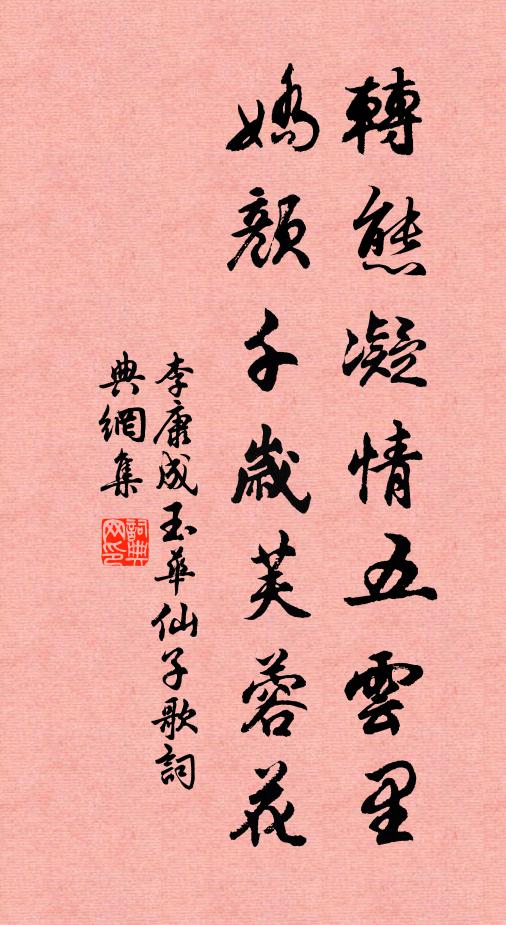 轉態凝情五雲里
嬌顏千歲芙蓉花
李康成玉華仙子歌詞
典網集
詞典網印